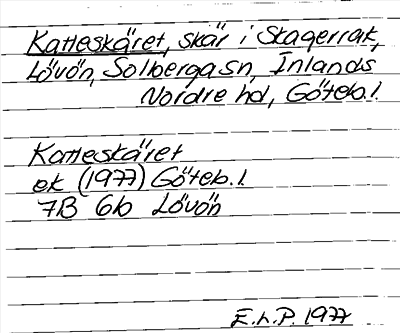 Katteskäret, skär i Skagerrak,
Lövön, Solberga sn, Inlands
Nordre hd, Göteb. l.
Katteskäret
ek (1977) Göteb. l.
7B 6b Lövön
E.h.P. 1977